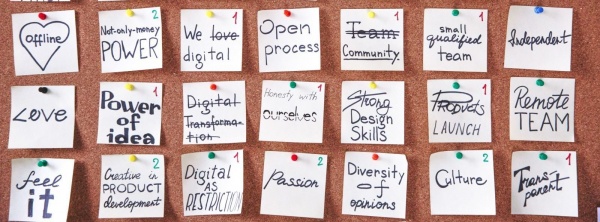 offline
Not-only-money 2
POWER
We love 1
digital
Open
process
Team 1
Community.
small 1
qualified
team
Independent
Love
Power 1
of
idea
Digital 1
Transforma-
tion
Honesty with 1
ourselves
Strong
Design
Skills
Products 1
LAUNCH
Remote
TEAM
feel
it
Creative in 2
PRODUCT
development
Digital 1
AS
RESTRICTION
Passion 2
Diversity
of
opinions
Culture 2
Trans- 1
parent